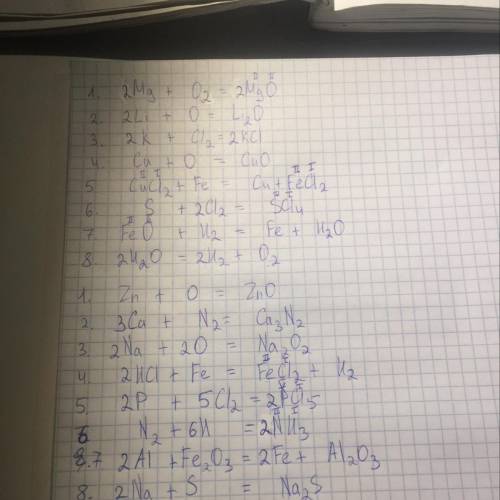 1. 2Mg + O₂ = 2MgO
2. 2Li + O = Li₂O
3. 2K + Cl₂ = 2KCl
4. Cu + O = CuO
5. CuCl₂ + Fe = Cu + FeCl₂
6. S + 2Cl₂ = SCl₄
7. FeO + H₂ = Fe + H₂O
8. 2H₂O = 2H₂ + O₂
1. Zn + O = ZnO
2. 3Ca + N₂ = Ca₃N₂
3. 2Na + 2O = Na₂O₂
4. 2HCl + Fe = FeCl₂ + H₂
5. 2P + 5Cl₂ = 2PCl₅
6 N₂ + 6H = 2NH₃
7 2Al + Fe₂O₃ = 2Fe + Al₂O₃
8. 2Na + S = Na₂S